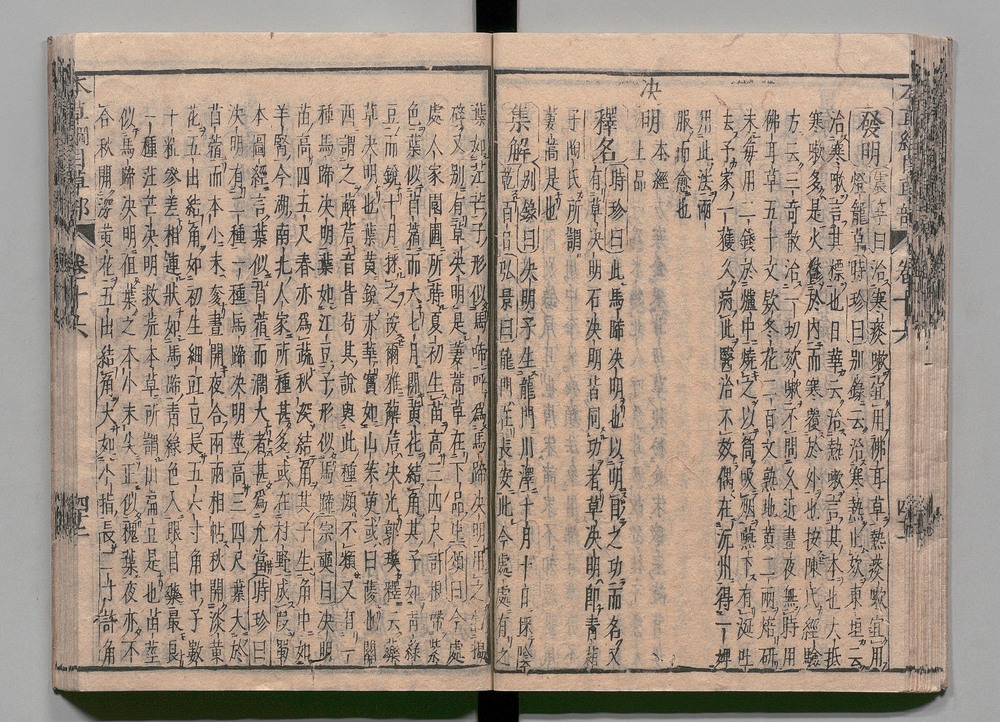 發明 震亨曰治寒痰嗽宜用佛耳草熱痰嗽宜用
燈籠草時珍曰別錄云治寒熱止欬東垣云
治寒嗽言其標也日華云治熱嗽言其本也大抵
寒嗽多是火鬱於內而寒覆於外也按陳氏經驗
方云三奇散治一切欬嗽不問久近晝夜無時用
佛耳草五十文欵冬花二百文熟地黄二兩焙研
末每用二錢於爐中燒之以筒吸烟嚥下有涎吐
去予家一獲久病此醫治不效偶在沅州得一婢
用此法兩
服而愈也
決明 本經上品
釋名 時珍曰此馬蹄決明也以明目之功而名又
有草決明石決明皆同功者草決明即青葙
子陶氏所謂
萋蒿是也
集解 別錄曰決明子生龍門川澤十月十日采陰
乾百日弘景曰龍門在長安北今處處有之
葉如茳芒子形似馬蹄呼為馬蹄決明用之當搗
碎又別有草決明是萋蒿子在下品也頌曰今處
處人家園圃所蒔夏初生苗高三四尺許根帶紫
色葉似苜蓿而大七月開黄花結角其子如青綠
豆而銳十月采之按爾雅薢茩決光郭璞釋云藥
草決明也葉黄銳赤華實如山茱萸或曰蔆也關
西謂之薢茩音皆苟其說與此種頗不類又有一
種馬蹄決明葉如江豆子形似馬蹄宗奭曰決明
苗高四五尺春亦為蔬秋深結角其子生角中如
羊腎今湖南北人家所種甚多或在村野成段蜀
本圖經言葉似苜蓿而濶大者甚為允當時珍曰
決明有二種一種馬蹄決明莖高三四尺葉大於
苜蓿而本小末奓晝開夜合兩兩相帖秋開淡黄
花五出結角如初生細豇豆長五六寸角中子數
十粒參差相連狀如馬蹄青綠色入眼目藥最良
一種茳芒決明救荒本草所謂山扁豆是也苗莖
似馬蹄決明但葉之本小末尖正似槐葉夜亦不
合秋開深黄花五出結角大如小指長二寸許角